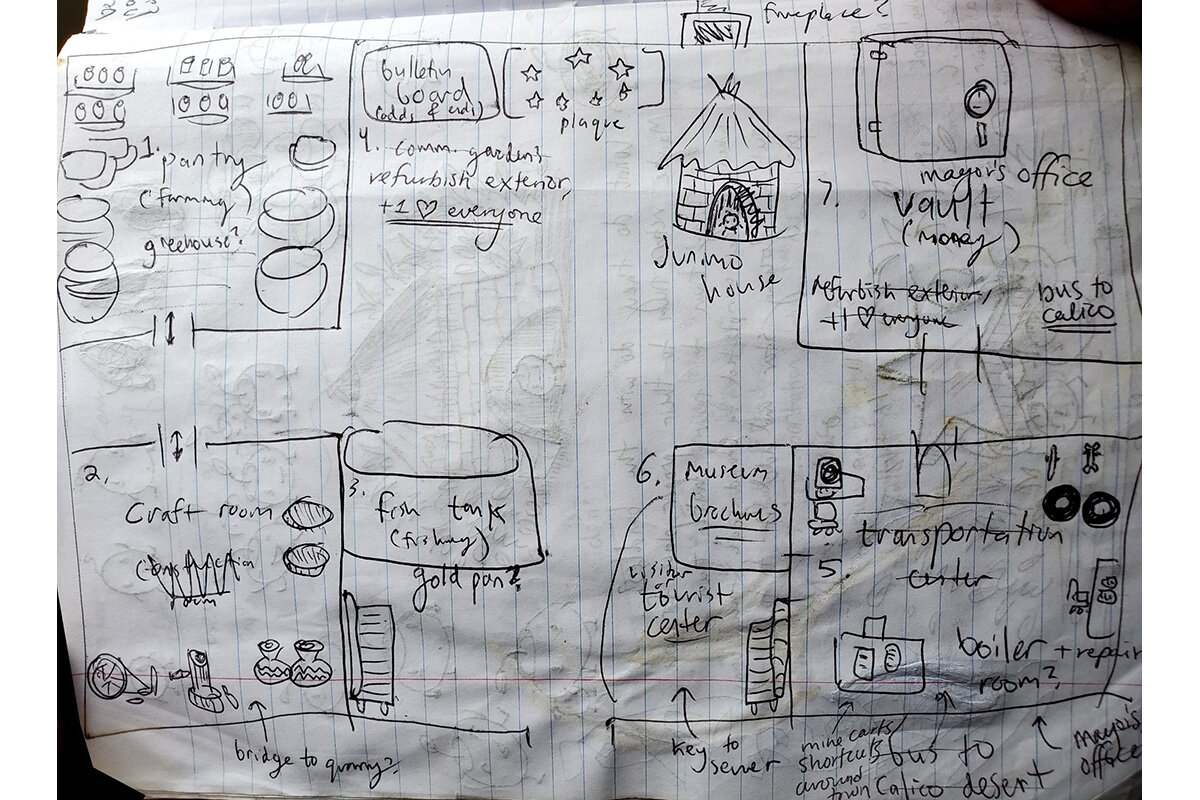 fireplace?
bulletin
board
(odds & ends)
plaque
1. pantry
(farming)
greehouse?
4. comm. gardens
refurbish exterior,
+1 ♡ everyone
Junimo
house
mayor's office
7. vault
(money)
refurbish exterior,
+1 ♡ everyone
bus to
calico
2.
Craft room
construction
room
3.
fish tank
(fishing)
gold pan?
6. museum
brochures
visitor
or
tourist
center
transportation
5. center
boiler + repair
room?
bridge to quarry?
key to
sewer
mine carts/
shortcuts
around
town
bus to
Calico desert
mayor's
office